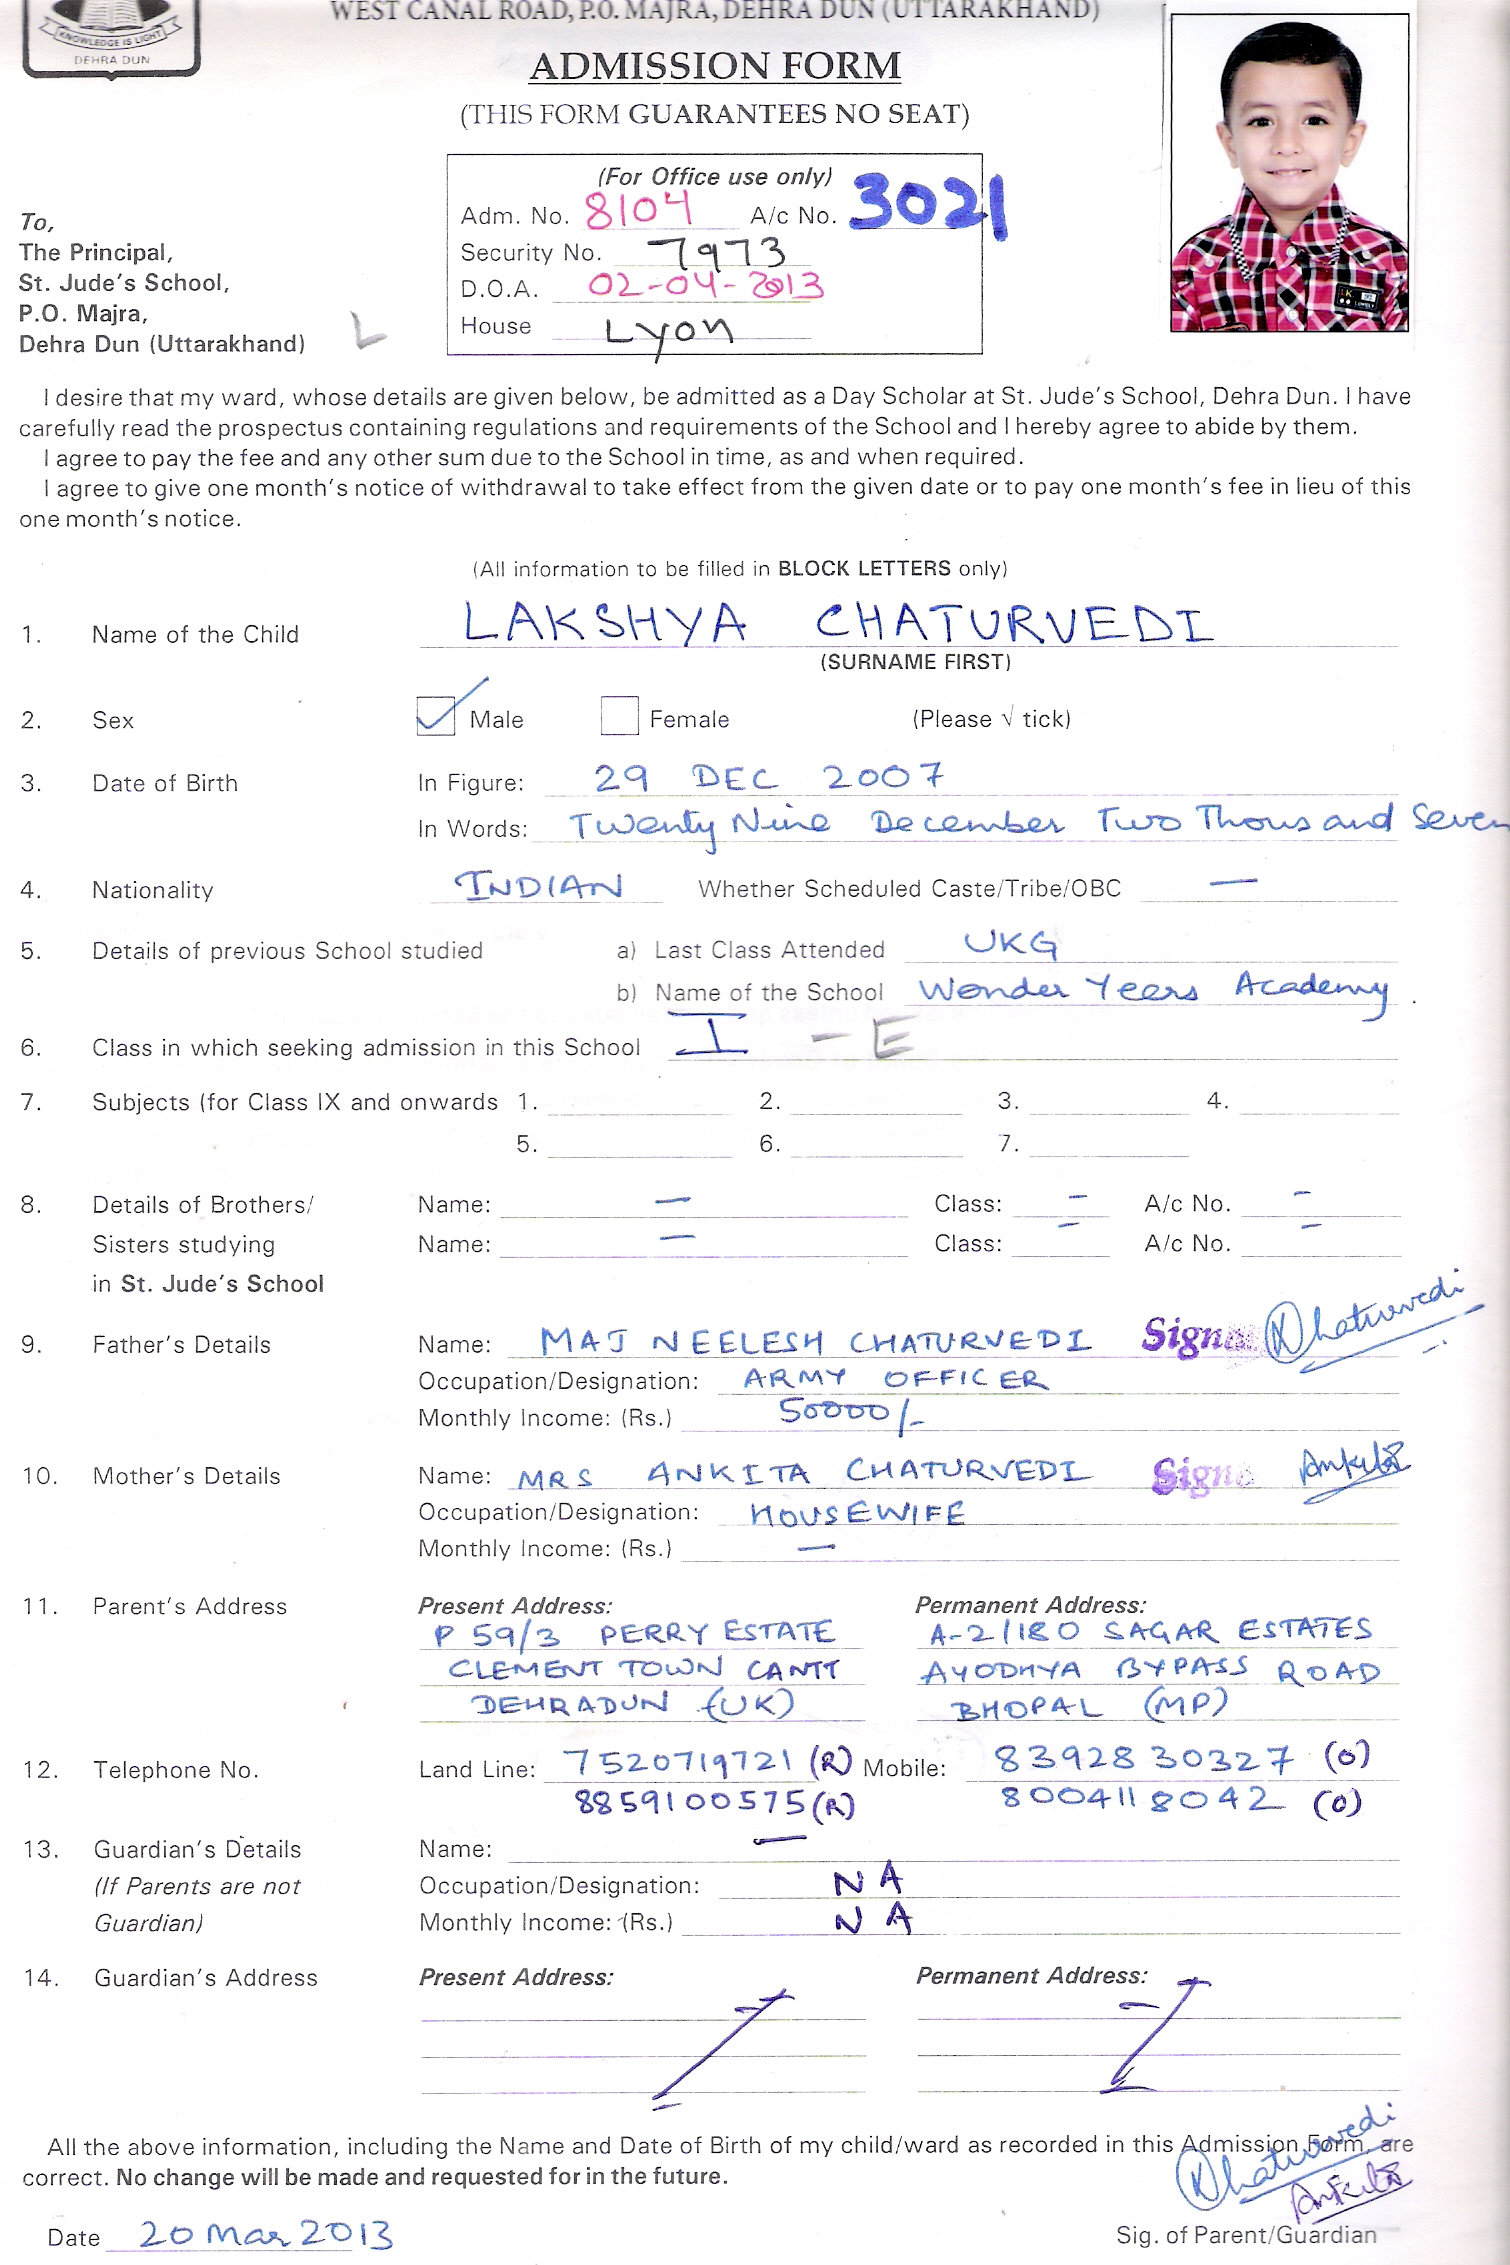 WEST CANAL ROAD, P.O. MAJRA, DEHRA DUN (UTTARAKHAND)
KNOWLEDGE IS LIGHT
DEHRA DUN
ADMISSION FORM
(THIS FORM GUARANTEES NO SEAT)
(For Office use only)
Adm. No. 8104 A/c No. 3021
Security No. 7973
D.O.A. 02-04-2013
House Lyon
To,
The Principal,
St. Jude's School,
P.O. Majra,
Dehra Dun (Uttarakhand) L
I desire that my ward, whose details are given below, be admitted as a Day Scholar at St. Jude's School, Dehra Dun. I have
carefully read the prospectus containing regulations and requirements of the School and I hereby agree to abide by them.
I agree to pay the fee and any other sum due to the School in time, as and when required.
I agree to give one month's notice of withdrawal to take effect from the given date or to pay one month's fee in lieu of this
one month's notice.
(All information to be filled in BLOCK LETTERS only)
1. Name of the Child LAKSHYA CHATURVEDI
(SURNAME FIRST)
2. Sex ✓ Male Female (Please √ tick)
3. Date of Birth In Figure: 29 DEC 2007
In Words: Twenty Nine December Two Thousand Seven
4. Nationality INDIAN Whether Scheduled Caste/Tribe/OBC —
5. Details of previous School studied a) Last Class Attended UKG
b) Name of the School Wonder Years Academy .
6. Class in which seeking admission in this School I - E
7. Subjects (for Class IX and onwards 1. 2. 3. 4.
5. 6. 7.
8. Details of Brothers/ Name: — Class: - A/c No. -
Sisters studying Name: — Class: - A/c No. -
in St. Jude's School
9. Father's Details Name: MAJ NEELESH CHATURVEDI Sign Chaturvedi
Occupation/Designation: ARMY OFFICER
Monthly Income: (Rs.) 50000/-
10. Mother's Details Name: MRS ANKITA CHATURVEDI Sign Ankita
Occupation/Designation: HOUSEWIFE
Monthly Income: (Rs.) —
11. Parent's Address Present Address: Permanent Address:
P 59/3 PERRY ESTATE A-2/180 SAGAR ESTATES
CLEMENT TOWN CANTT AYODHYA BYPASS ROAD
DEHRADUN (UK) BHOPAL (MP)
12. Telephone No. Land Line: 7520719721 (R) Mobile: 8392830327 (O)
8859100575 (R) 8004118042 (O)
13. Guardian's Details Name: —
(If Parents are not Occupation/Designation: NA
Guardian) Monthly Income: (Rs.) NA
14. Guardian's Address Present Address: Permanent Address:
All the above information, including the Name and Date of Birth of my child/ward as recorded in this Admission Form, are
correct. No change will be made and requested for in the future.
Chaturvedi
Ankita
Date 20 Mar 2013 Sig. of Parent/Guardian